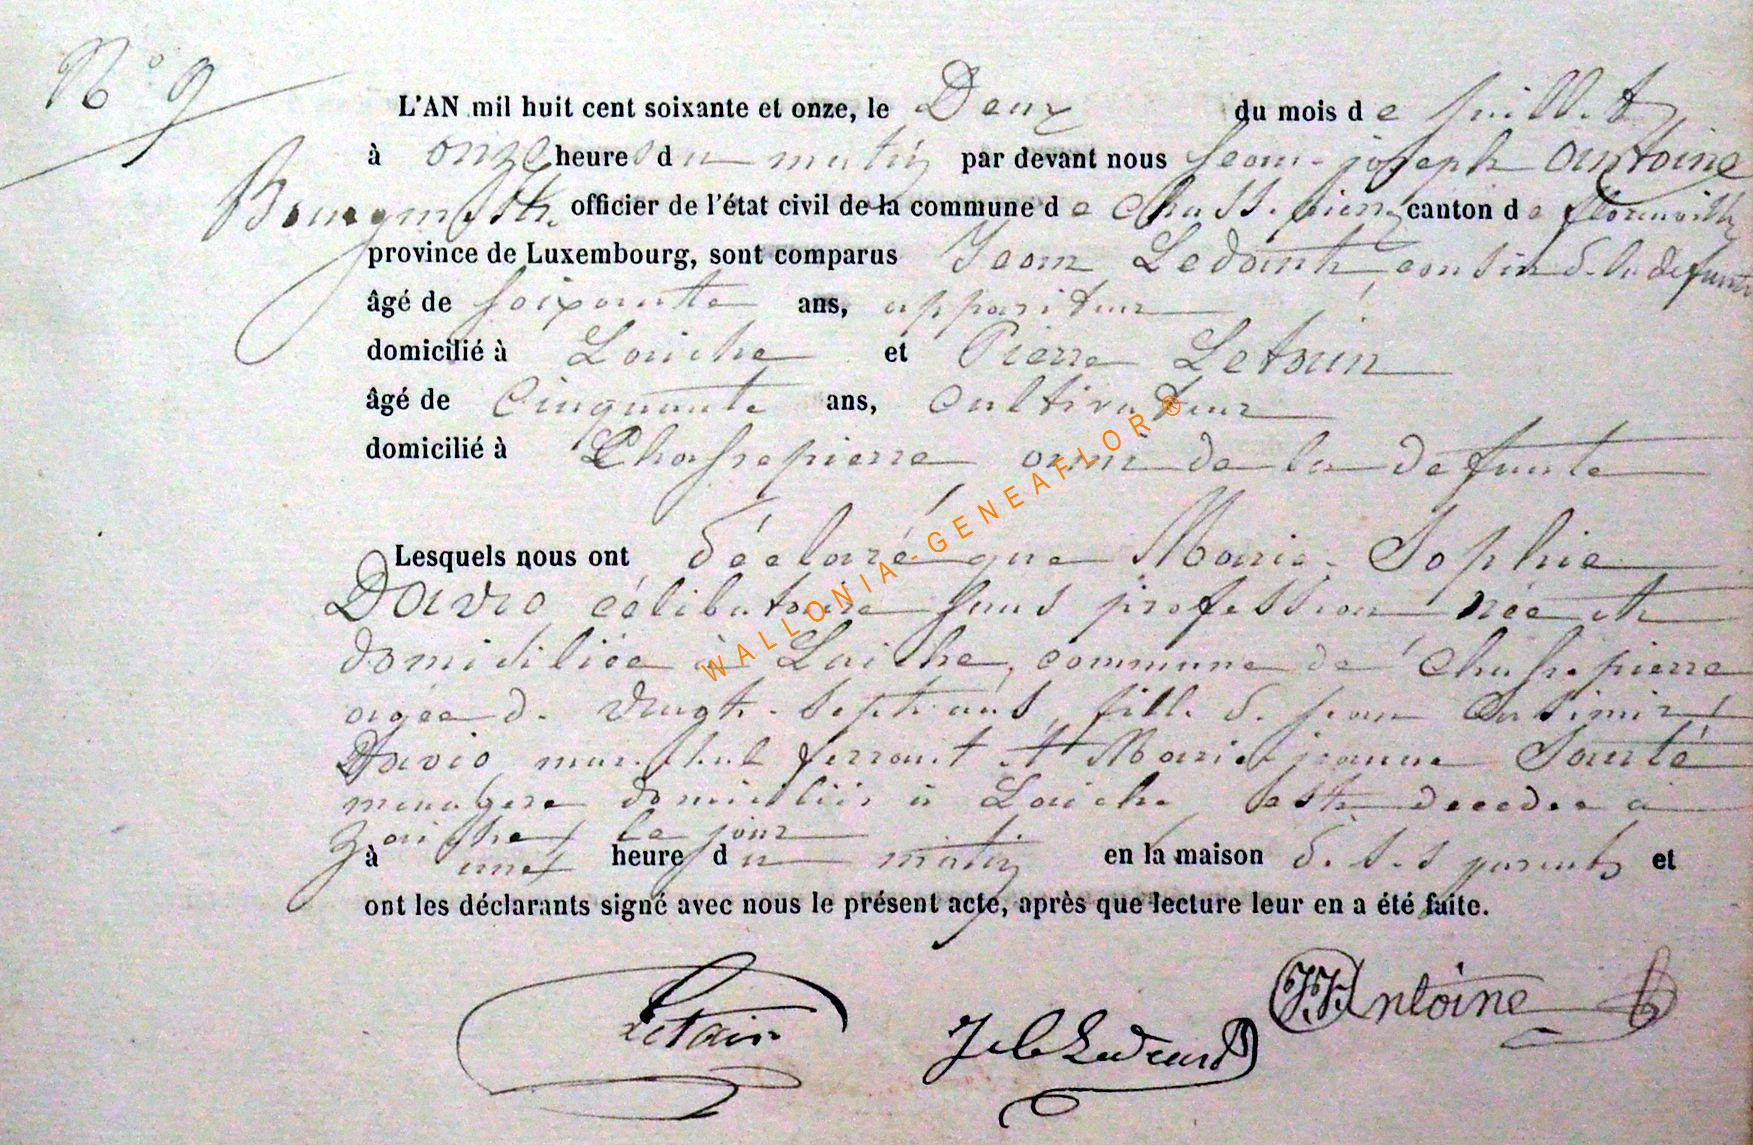 N° 9
L'AN mil huit cent soixante et onze, le Deux du mois de juillet
à onze heures du matin par devant nous Jean-joseph Antoine
Bourgmestre officier de l'état civil de la commune de Chassepierre canton de florenville
province de Luxembourg, sont comparus Jean Ledant cousin de la defunte
âgé de soixante ans, appariteur
domicilié à Laiche et Pierre Letain
âgé de Cinquante ans, Cultivateur
domicilié à Chassepierre ami de la defunte
Lesquels nous ont déclaré que Marie-Sophie
David célibataire sans profession née et
domiciliée à Laiche, commune de Chassepierre
agée de vingt-sept ans, fille de jean Casimir
David marechal ferrant et Marie jeanne
menagere domiciliés à Laiche est decedee à
Laiche ce jour
à une heure du matin en la maison de ses parents et
ont les déclarants signé avec nous le présent acte, après que lecture leur en a été faite.
Letain
J Ledant
JJ Antoine
WALLONIA-GENEAFLOR®